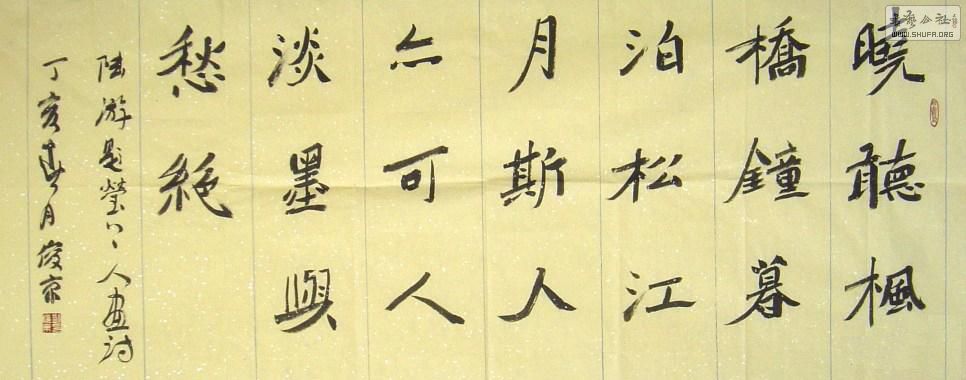 曉聽楓
橋鐘暮
泊松江
月斯人
亦可人
淡墨與
愁絶
陸游題瑩上人畫詩
丁亥春月俊京
書藝公社
WWW.SHUFA.ORG